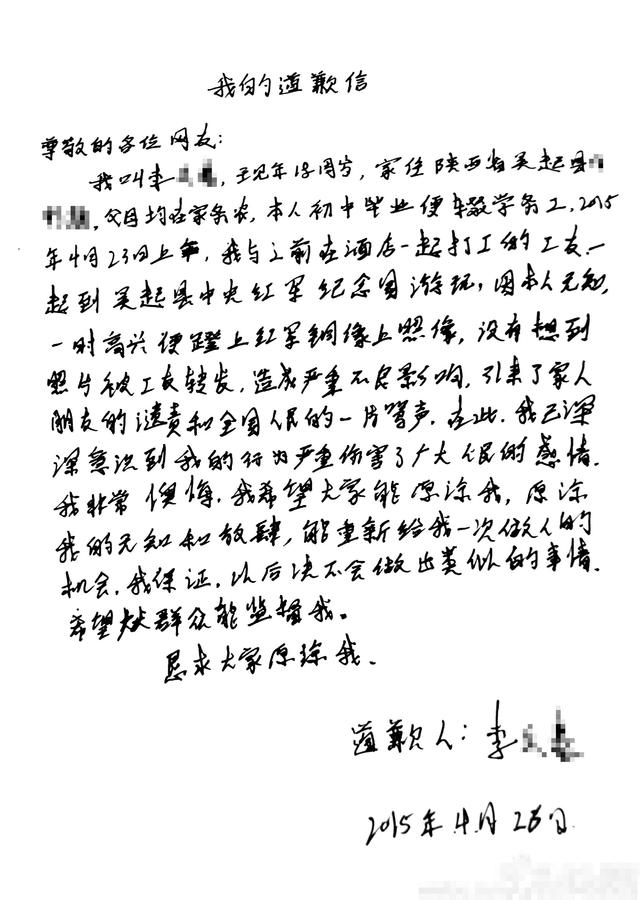 我的道歉信
尊敬的各位网友:
我叫李,现年18周岁,家住陕西省吴起县
,父母均在家务农,本人初中毕业便辍学务工,2015
年4月23日上午,我与之前在酒店一起打工的工友一
起到吴起县中央红军纪念园游玩,因本人无知,
一时高兴便蹬上红军铜像上照像,没有想到
照片被工友转发,造成严重不良影响,引来了家人
朋友的谴责和全国人民的一片骂声.在此.我已深
深意识到我的行为严重伤害了广大人民的感情.
我非常懊悔.我希望大家能原谅我,原谅
我的无知和放肆,能重新给我一次做人的
机会.我保证.以后决不会做出类似的事情.
希望大众群众能监督我。
恳求大家原谅我.
道歉人:李
2015年4月26日